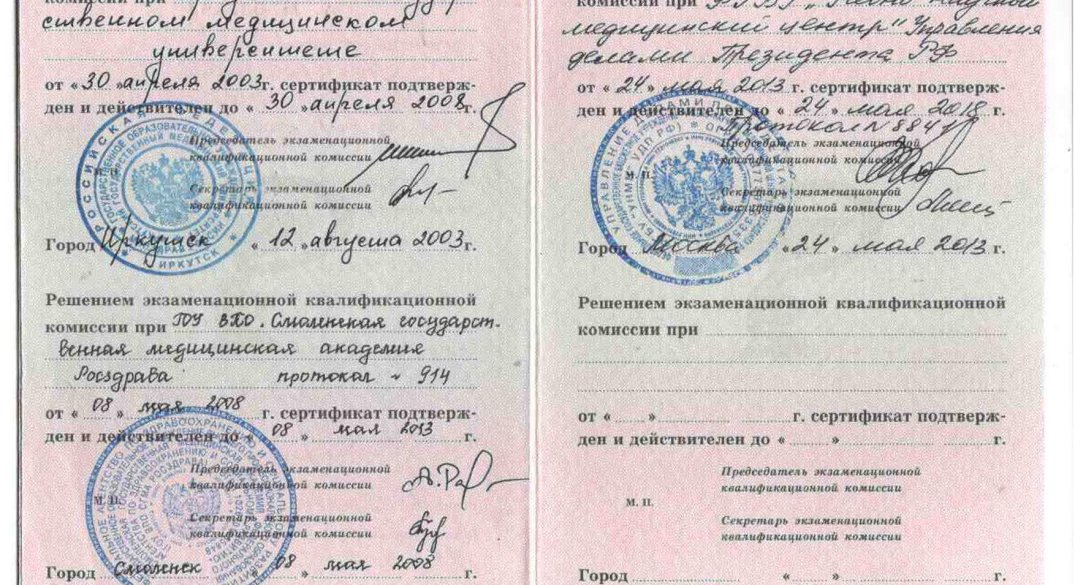 ственном медицинском
университете
от « 30 » апреля 2003 г. сертификат подтверж-
ден и действителен до « 30 » апреля 2008 г.
Председатель экзаменационной
квалификационной комиссии
М. П.
Секретарь экзаменационной
квалификационной комиссии
Город Иркутск « 12 » августа 2003 г.
ИРКУТСК
Решением экзаменационной квалификационной
комиссии при ГОУ ВПО. Смоленская государст-
венная медицинская академия
Росздрава протокол № 914
от « 08 » мая 2008 г. сертификат подтверж-
ден и действителен до « 08 » мая 2013 г.
Председатель экзаменационной
квалификационной комиссии
М. П.
Секретарь экзаменационной
квалификационной комиссии
Город Смоленск « 08 » мая 2008 г.
комиссии при
медицинский центр" Управления
делами Президента РФ
от « 24 » мая 2013 г. сертификат подтверж-
ден и действителен до « 24 » мая 2018 г.
Протокол N 8841
Председатель экзаменационной
квалификационной комиссии
М. П.
Секретарь экзаменационной
квалификационной комиссии
Город Москва « 24 » мая 2013 г.
Решением экзаменационной квалификационной
комиссии при
от « » г. сертификат подтверж-
ден и действителен до « » г.
Председатель экзаменационной
квалификационной комиссии
М. П.
Секретарь экзаменационной
квалификационной комиссии
Город « » г.